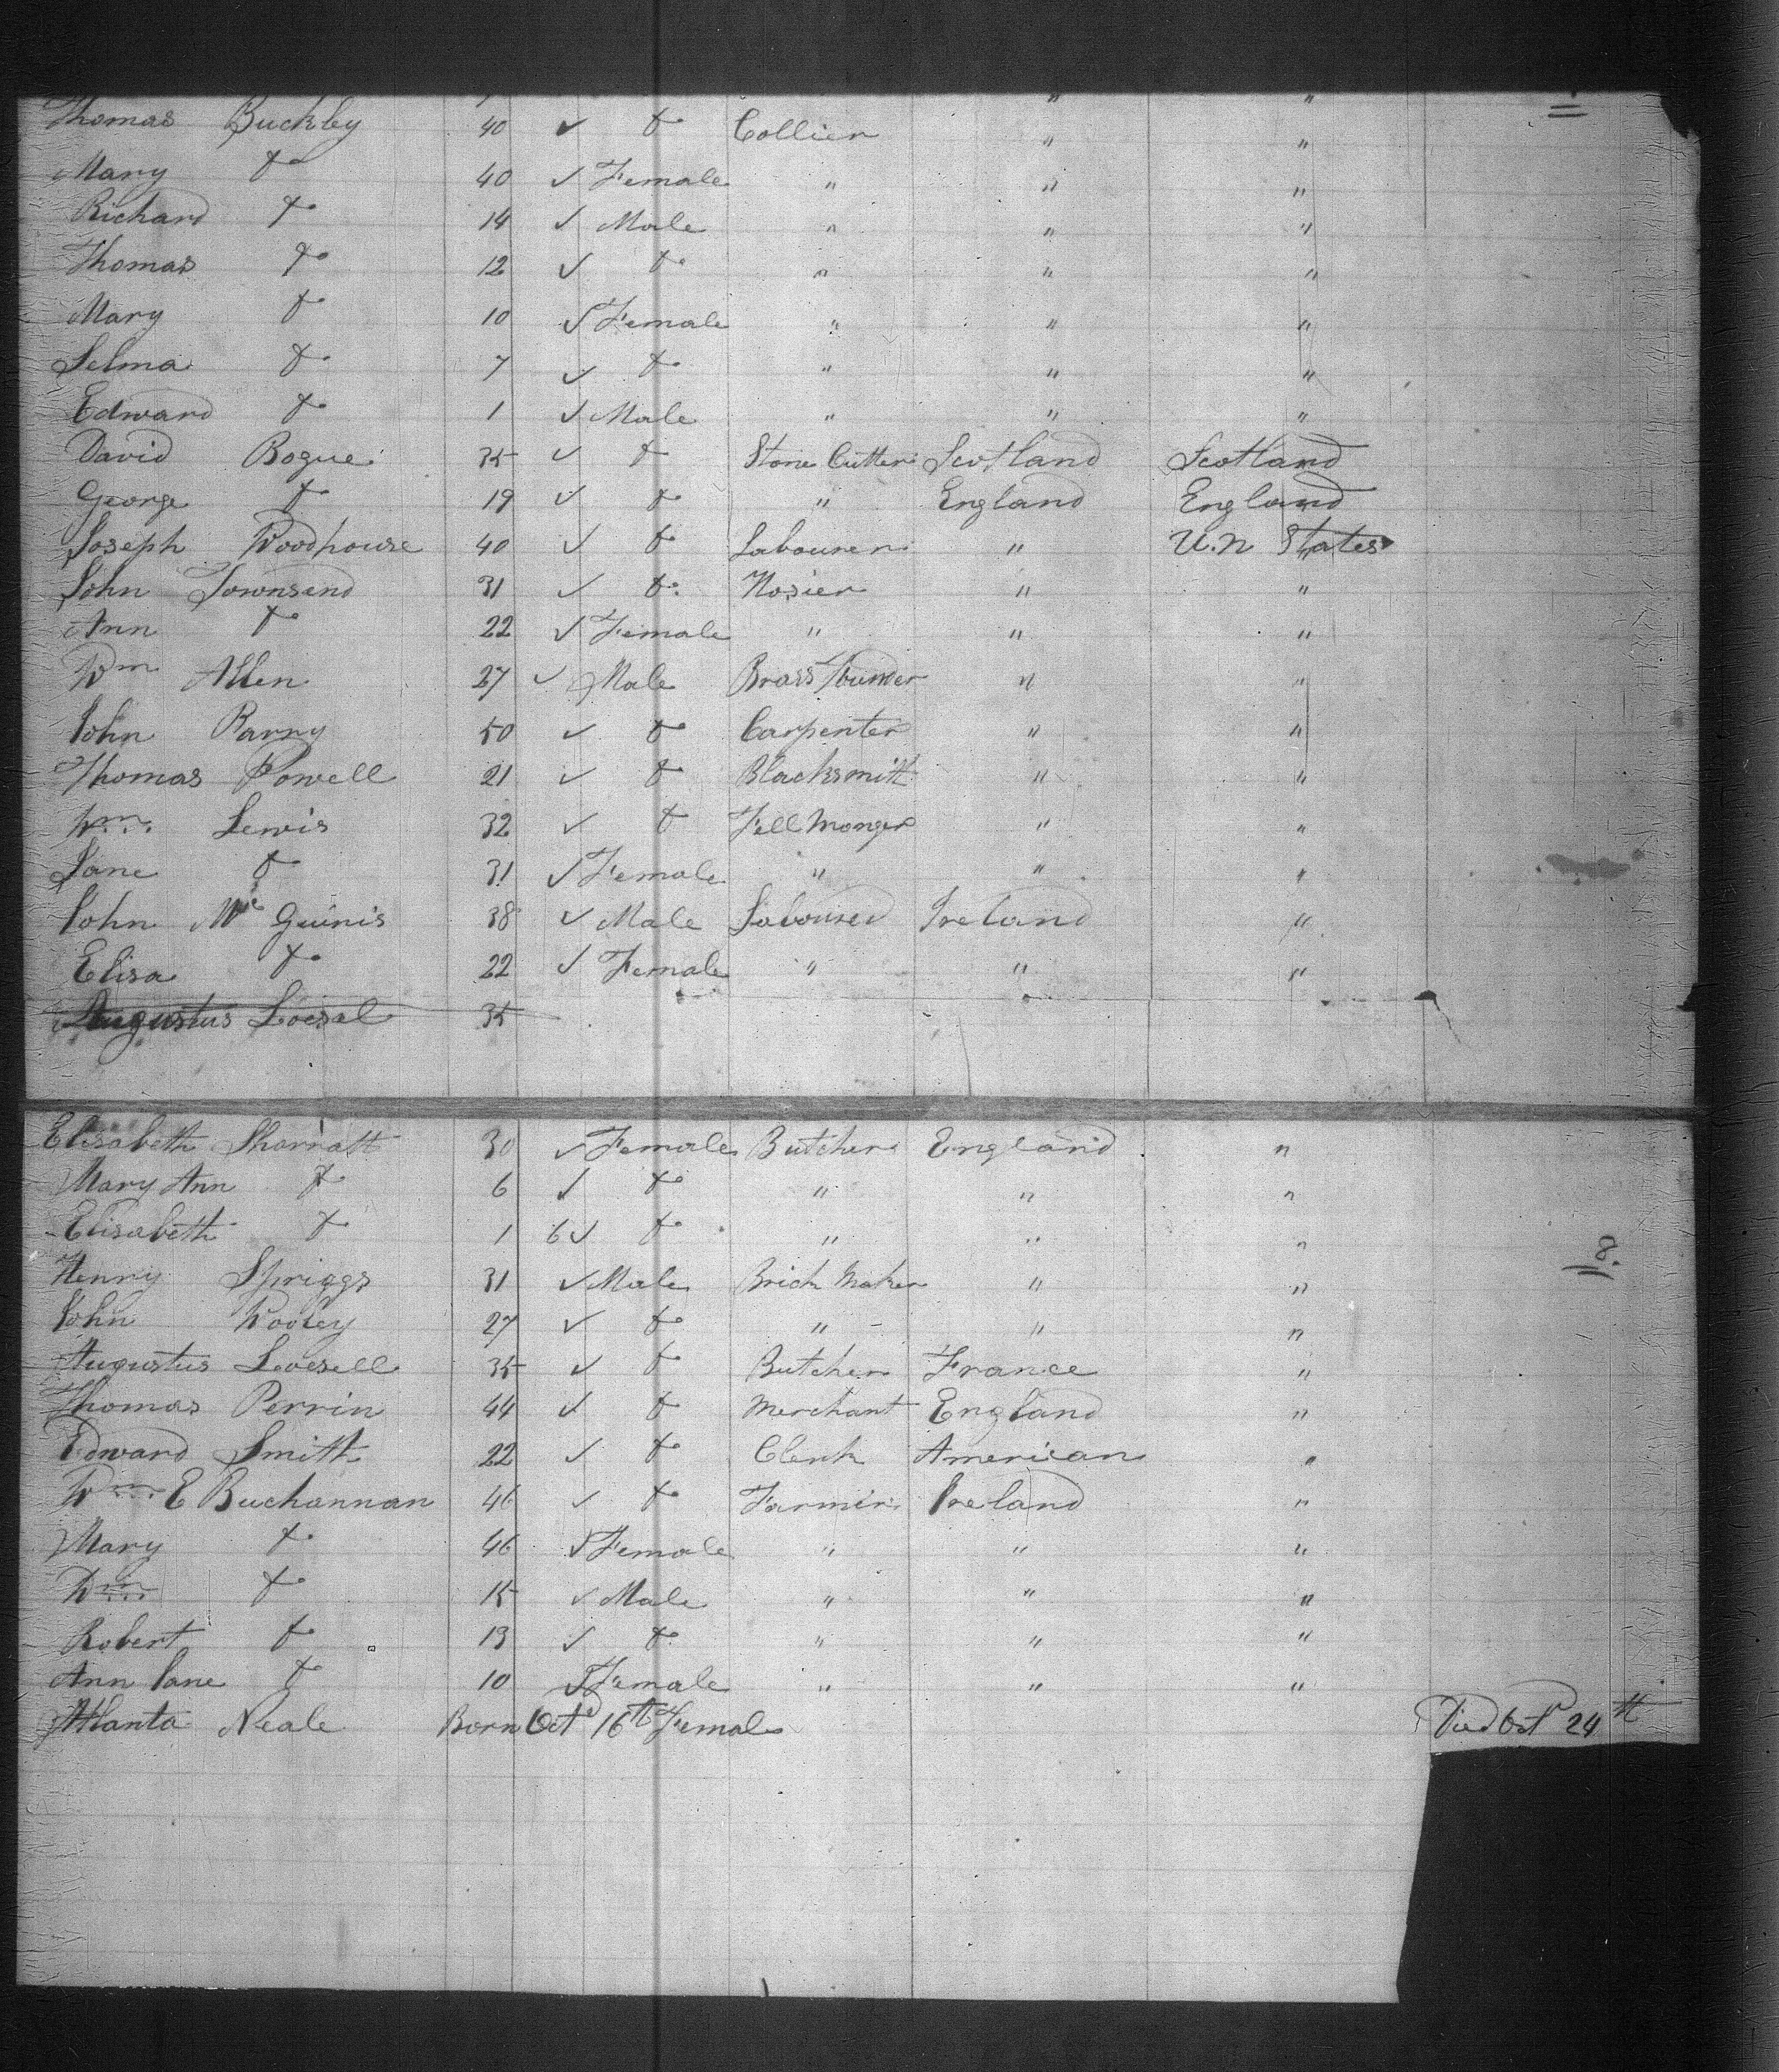 " "
Thomas Buckley 40 ✓ do Collier " "
Mary do 40 ✓ Female " " "
Richard do 14 ✓ Male " " "
Thomas do 12 ✓ do " " "
Mary do 10 ✓ Female " " "
Selma do 7 ✓ do " " "
Edward do 1 ✓ Male " " "
David Bogue 35 ✓ do Stone Cutter Scotland Scotland
George do 19 ✓ do " England England
Joseph Woodhouse 40 ✓ do Labourer " U.n States
John Townsend 31 ✓ do Hosier " "
Ann do 22 ✓ Female " " "
Wm Allen 27 ✓ Male Brass founder " "
John Parry 50 ✓ do Carpenter " "
Thomas Powell 21 ✓ do Blacksmith " "
Wm Lewis 32 ✓ do Fell Monger " "
Jane do 31 ✓ Female " " "
John Mc Guinis 38 ✓ Male Laboured Ireland "
Elisa do 22 ✓ Female " " "
Augustus Loesel 35
Elisabeth Sharratt 30 ✓ Female Butcher England "
Mary Ann do 6 ✓ do " " "
Elisabeth do 1 6 ✓ do " " "
Henry Spriggs 31 ✓ Male Brick Maker " " 8.
John Wooley 27 ✓ do " " "
Augustus Loesell 35 ✓ do Butcher France "
Thomas Perrin 44 ✓ do Merchant England "
Edward Smith 22 ✓ do Clerk American "
Wm E Buchannan 46 ✓ do Farmer Ireland "
Mary do 46 ✓ Female " " "
Wm do 15 ✓ Male " " "
Robert do 13 ✓ do " " "
Ann Jane do 10 ✓ Female " " "
Atlanta Neale Born Oct 16th Female Died Oct 24th